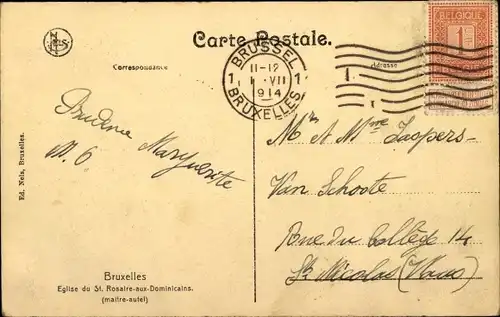 Carte Postale.
Correspondance
Adresse
BRUSSEL
11-12
1 1 VII 1
1914
BRUXELLES
BELGIQUE
1
Marguerite
Mrs et Mme Jaspers-
Van Schoote
Rue du Collège 14
St Nicolas (Waas)
Ed. Nels, Bruxelles.
Bruxelles
Eglise du St. Rosaire-aux-Dominicains.
(maître-autel)